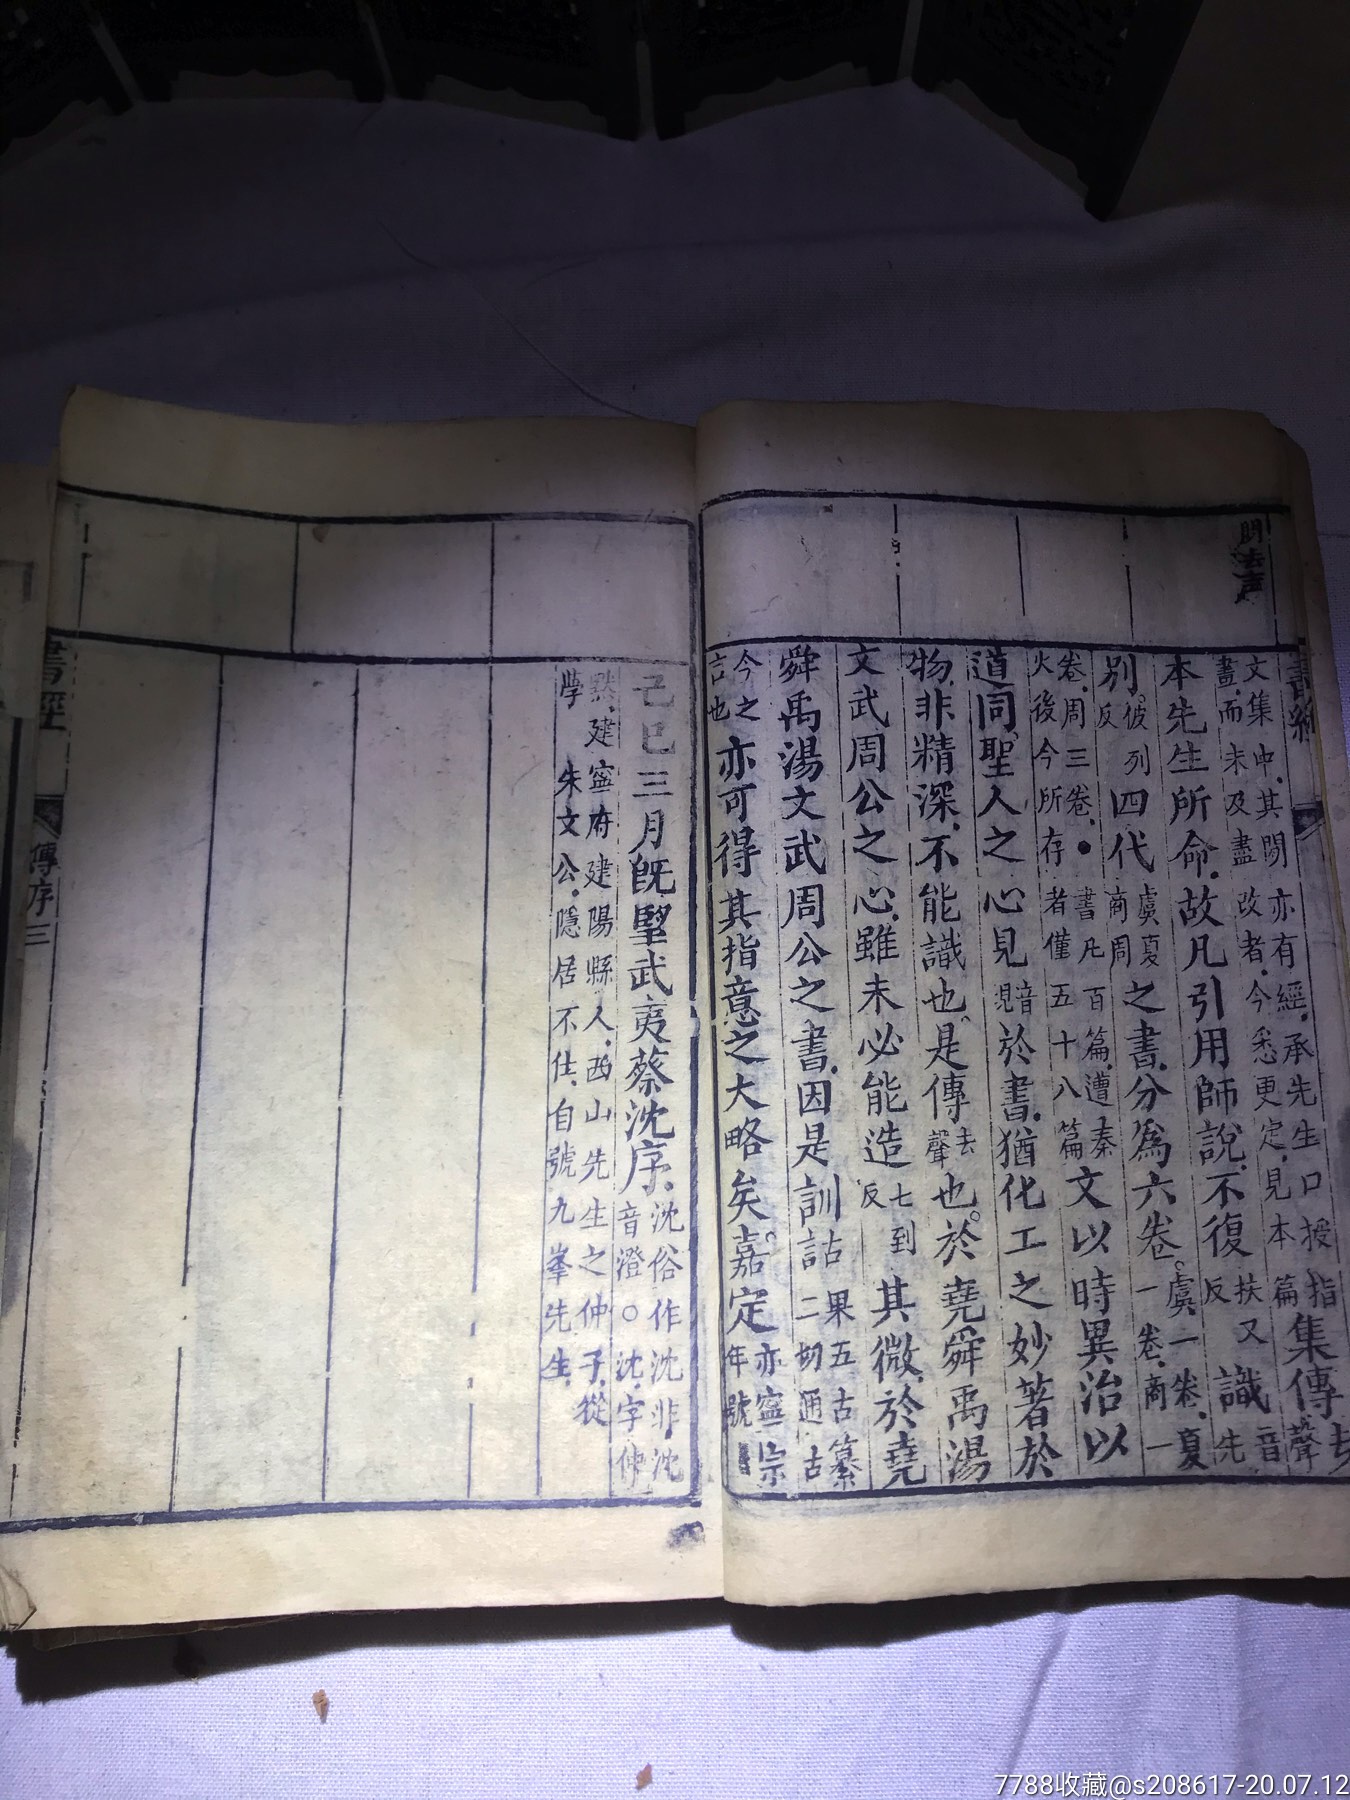 間去声
書經
文集中其間亦有經承先生口授指畫而未及盡改者今悉更定見本篇集傳去聲
本先生所命故凡引用師說不復扶又反識音先
別彼列反四代虞夏商周之書分爲六卷虞一卷夏一卷商一
卷周三卷●書凡百篇遭秦火後今所存者僅五十八篇文以時異治以
道同聖人之心見音現於書猶化工之妙著於
物非精深不能識也是傳去聲也於堯舜禹湯
文武周公之心雖未必能造七到反其微於堯
舜禹湯文武周公之書因是訓詁果五古纂二切通古
今之言也亦可得其指意之大略矣嘉定亦寧宗年號
己巳三月既望武夷蔡沈序沈俗作沈非沈音澄○沈字仲
默建寧府建陽縣人西山先生之仲子從
學朱文公隱居不仕自號九峯先生
書經 傳序 三
7788收藏@s208617-20.07.12